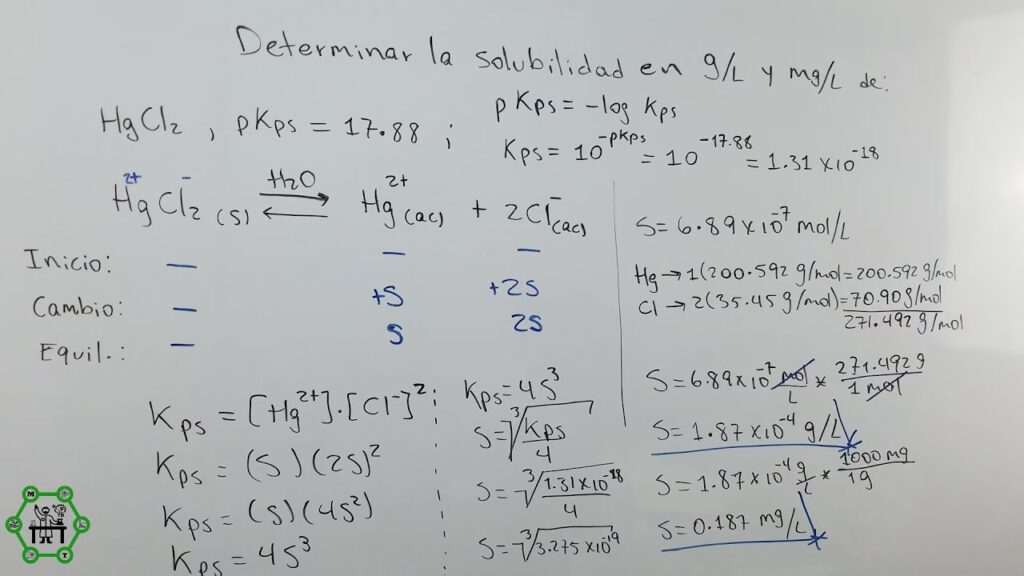 Determinar la solubilidad en g/L y mg/L de:
HgCl2 , pKps = 17.88 ;
pKps = -log Kps
Kps = 10^-pKps = 10^-17.88 = 1.31 x10^-18
2+ -
HgCl2 (s) ⇌ H2O Hg^2+ (ac) + 2Cl^- (ac)
Inicio: — — —
Cambio: — +S +2S
Equil.: — S 2S
Kps = [Hg^2+]·[Cl^-]^2 ;
Kps = (S)(2S)^2
Kps = (S)(4S^2)
Kps = 4S^3
Kps = 4S^3
S = ∛(Kps/4)
S = ∛(1.31x10^-18/4)
S = ∛(3.275x10^-19)
S = 6.89x10^-7 mol/L
Hg → 1(200.592 g/mol = 200.592 g/mol
Cl → 2(35.45 g/mol) = 70.90 g/mol
271.492 g/mol
S = 6.89x10^-7 mol/L * 271.492 g/1 mol
S = 1.87x10^-4 g/L
S = 1.87x10^-4 g/L * 1000 mg/1g
S = 0.187 mg/L